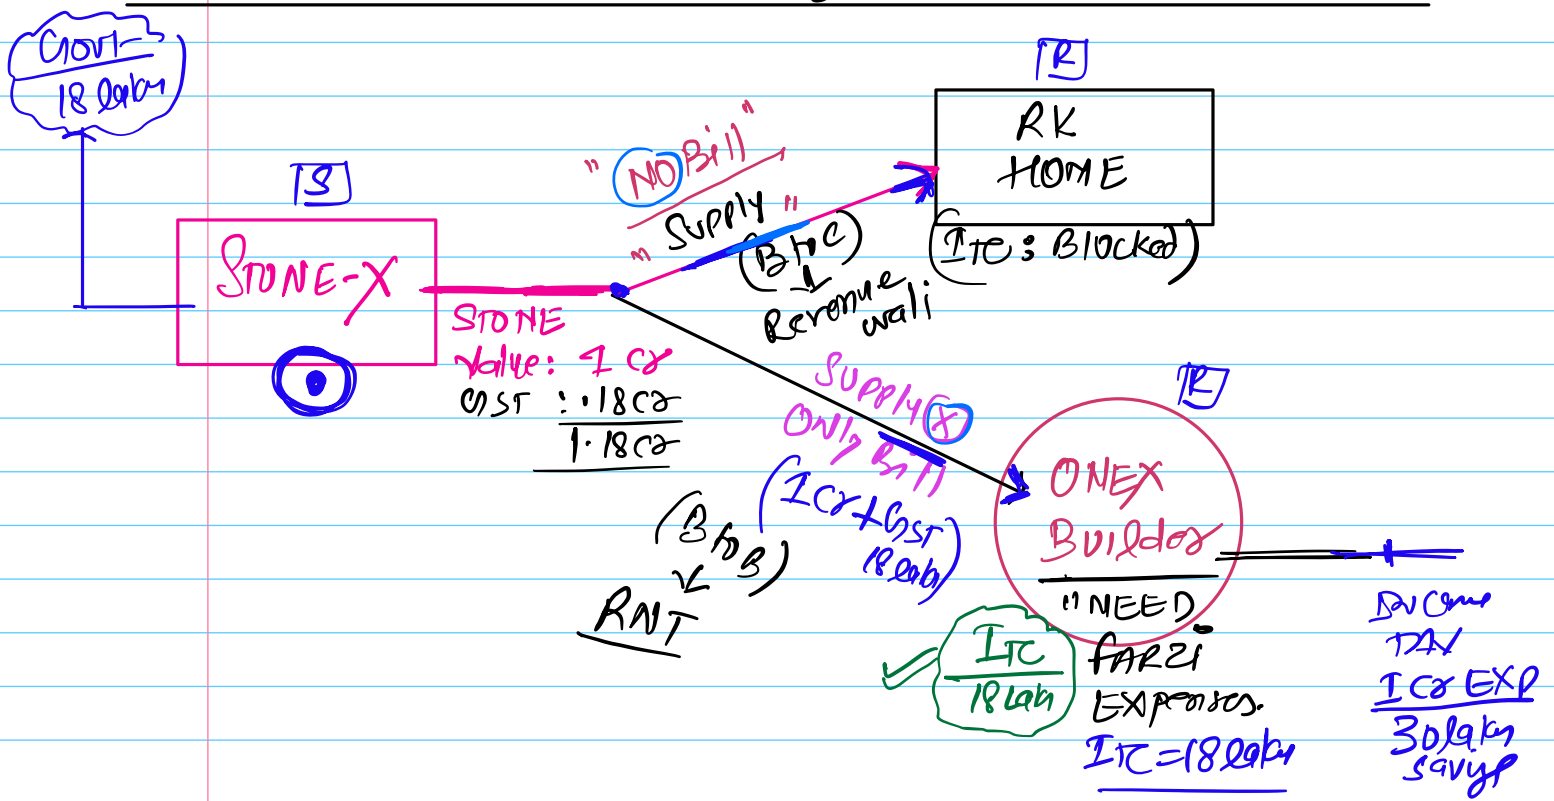 Govt
18 lakh
S
STONE-X
STONE
Value: 1 cr
GST : .18cr
1.18cr
"NO Bill"
"Supply"
(B to C)
Revenue
wali
R
RK
HOME
(ITC: Blocked)
Supply (X)
Only Bill
(1 Cr + GST
18 lakh)
(B to B)
RNT
R
ONEX
Builder
"NEED
FARZI
EXPenses.
ITC=18 lakh
ITC
18 Lakh
Income
TAX
1 Cr EXP
30 lakh